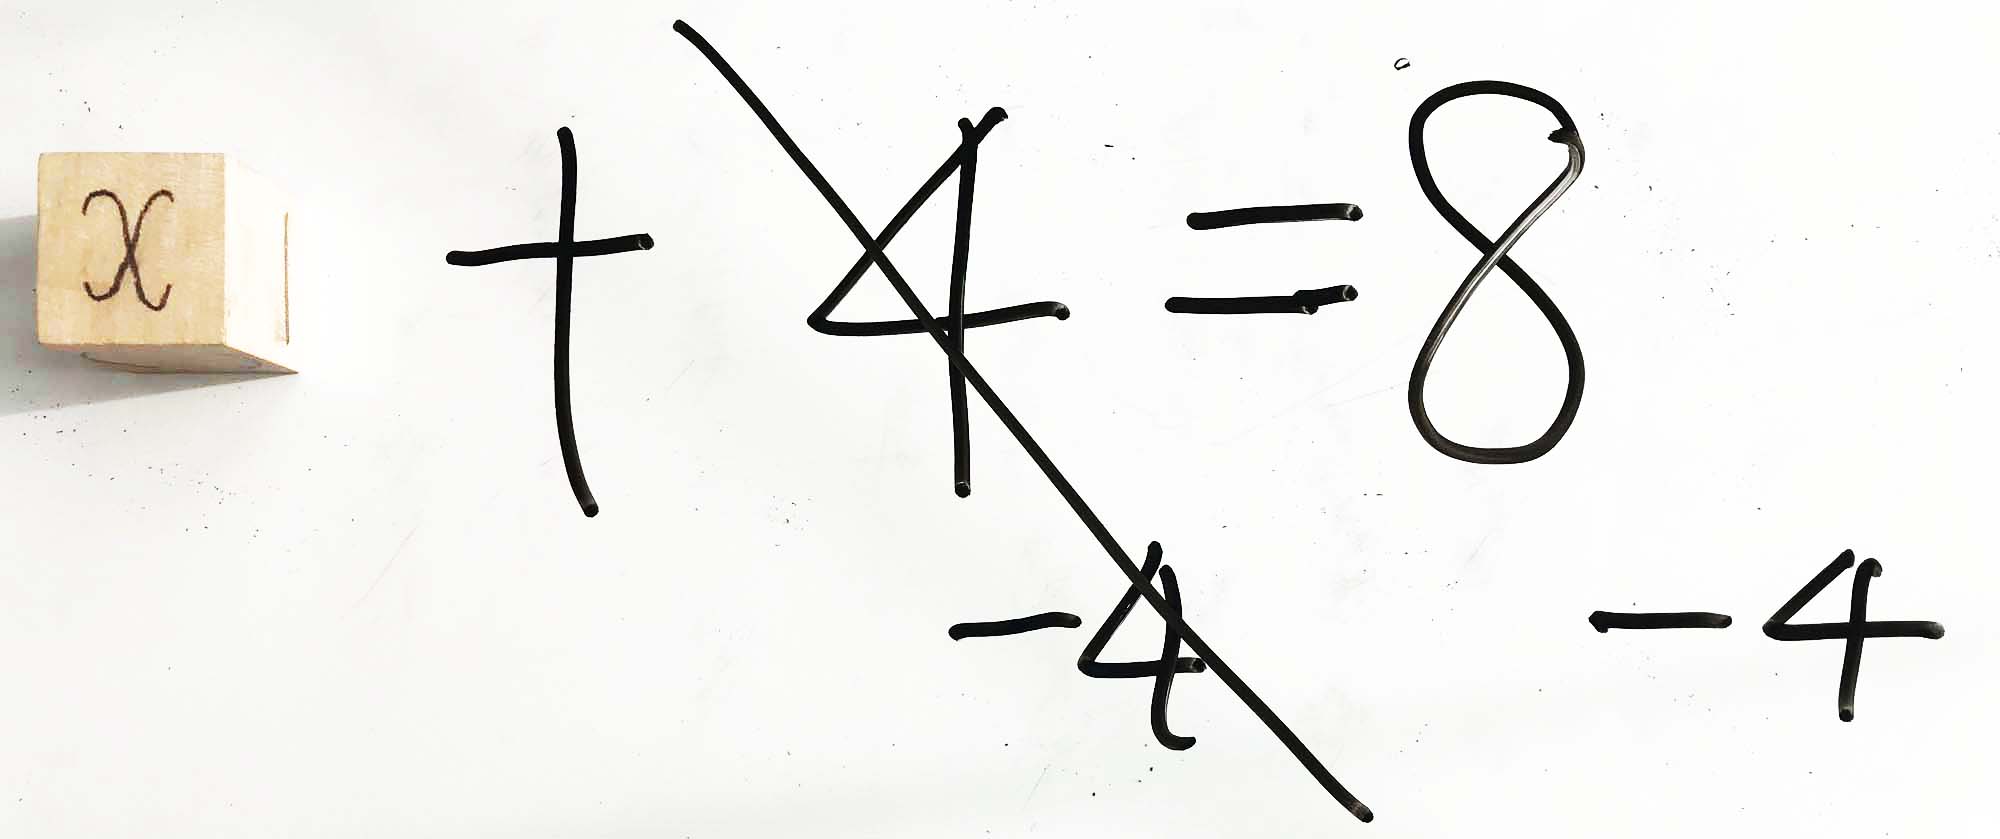 x + 4 = 8
-4 -4